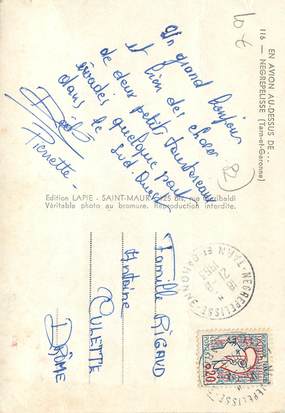 EN AVION AU-DESSUS DE...
116 — NEGREPELISSE (Tarn-et-Garonne)
10 €
Un grand bonjour
et bien des choses
de deux petits tourtereaux
évadés quelque part
dans le Sud. Ouest
Dédé
Pierrette
Edition LAPIE - SAINT-MAUR 125 bis, rue Garibaldi
Véritable photo au bromure. Reproduction interdite.
Famille RIGAUD
Antoine
CULETTE
DRÔME
NEGREPELISSE
TARN ET GARONNE
0,20